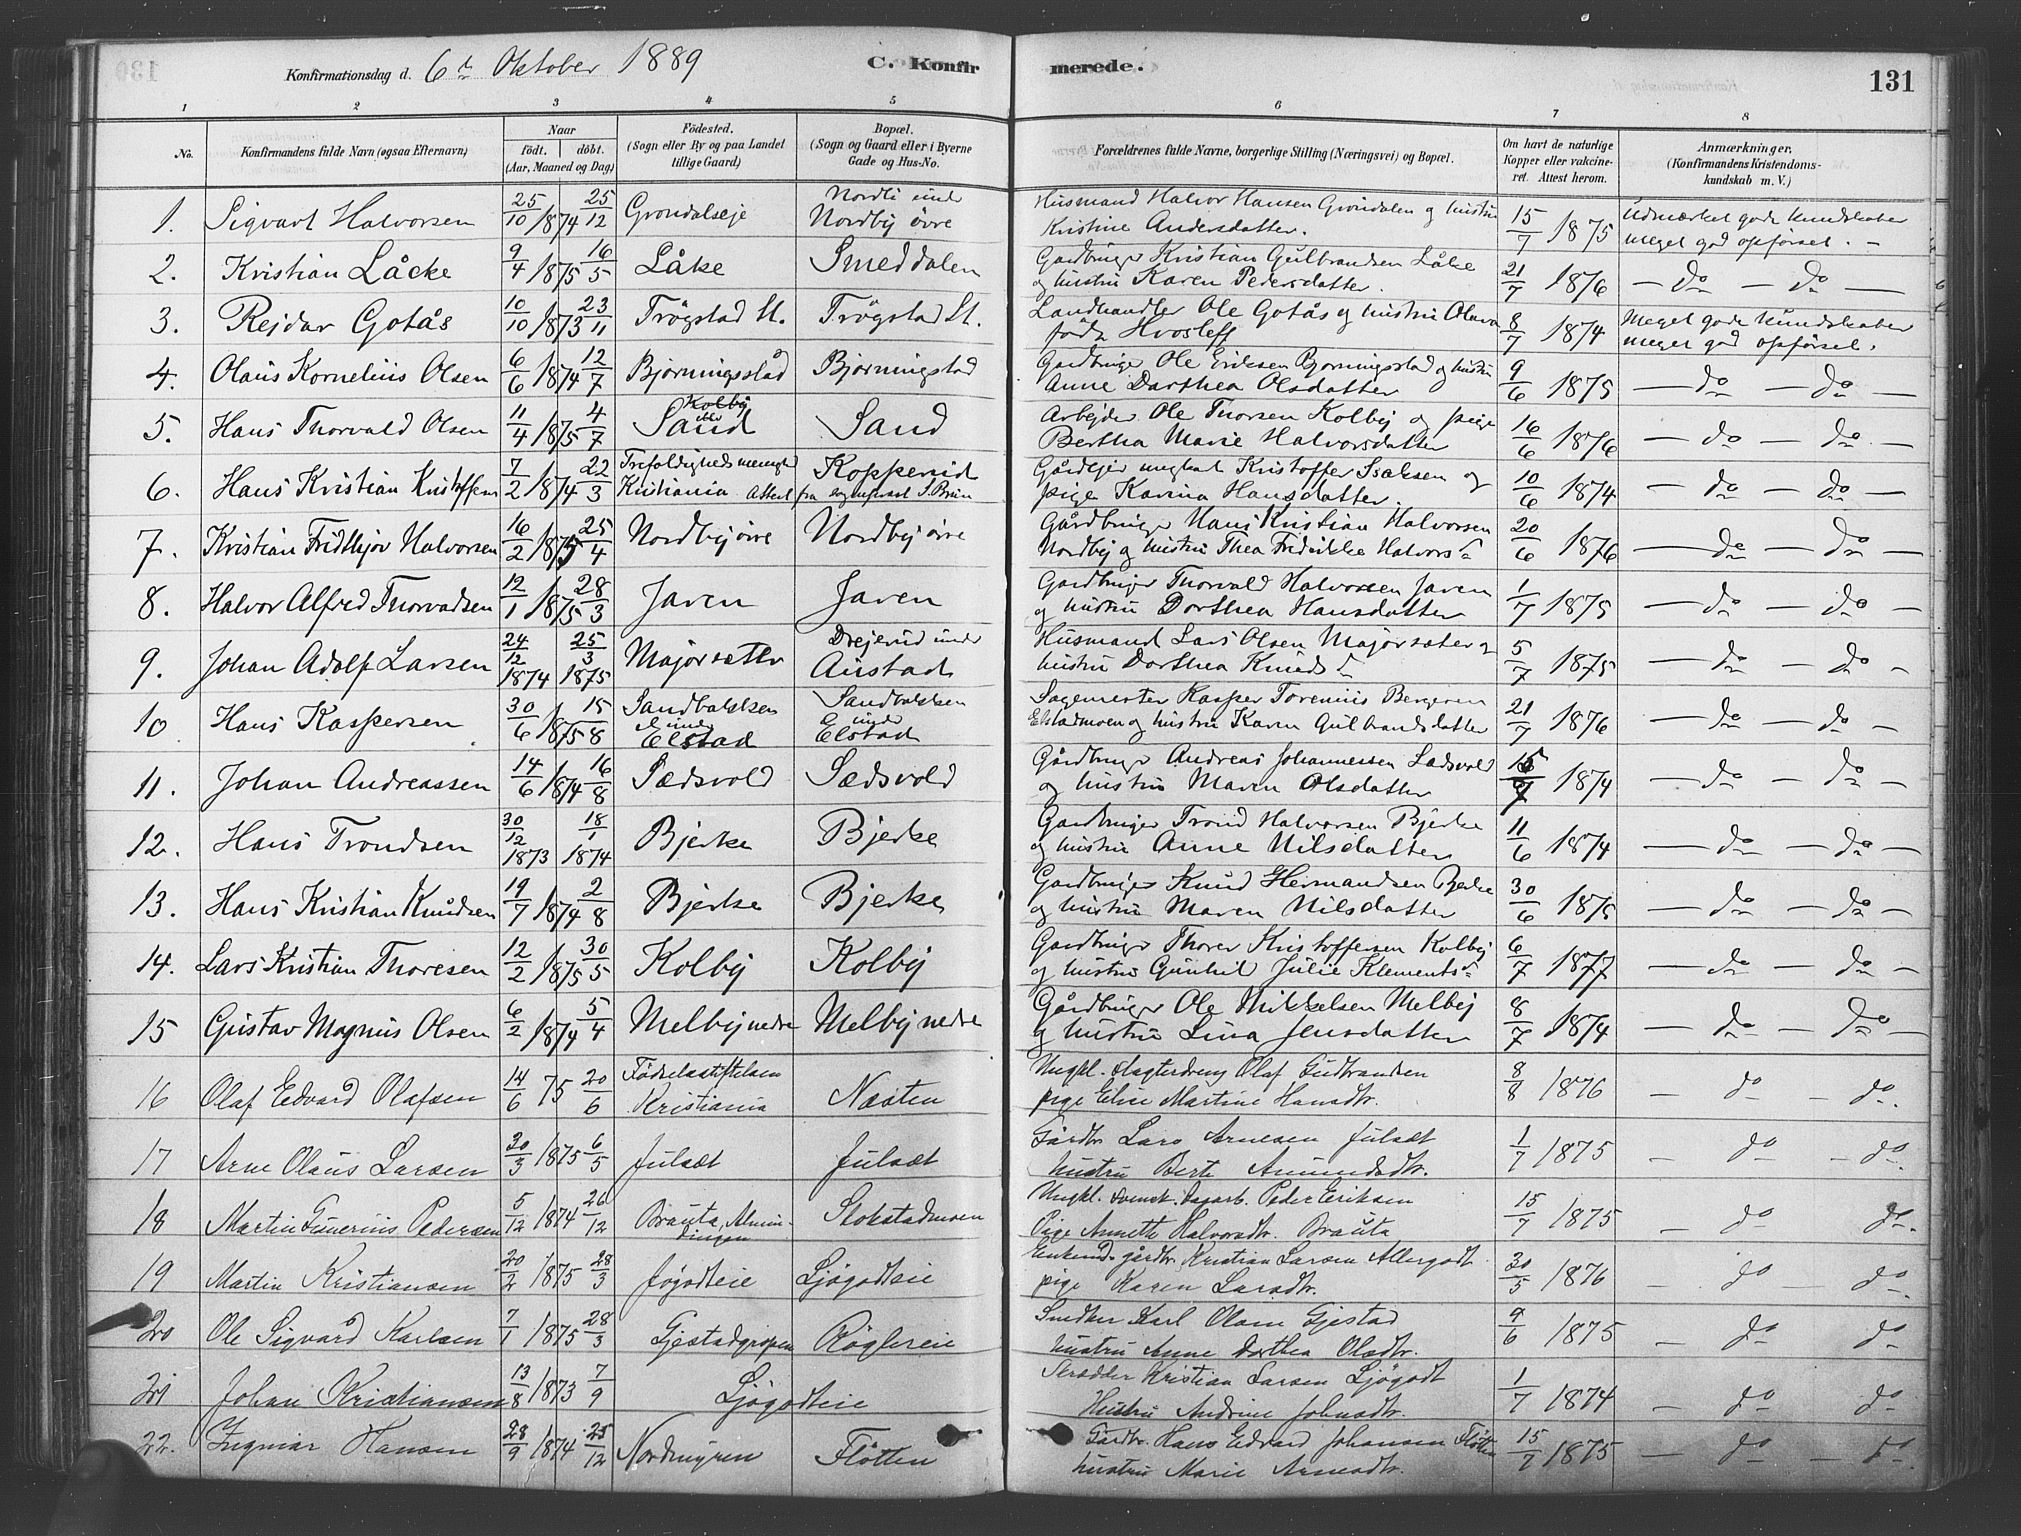 Konfirmationsdag d. 6te Oktober 1889
C. Konfir
merede.
131
1 2 3 4 5 6 7 8
No.
Konfirmandens fulde Navn (ogsaa Efternavn)
Naar
født. døbt.
(Aar, Maaned og Dag)
Fødested.
(Sogn eller By og paa Landet
tillige Gaard)
Bopæl.
(Sogn og Gaard eller i Byerne
Gade og Hus-No.
Forældrenes fulde Navne, borgerlige Stilling (Næringsvei) og Bopæl.
Om havt de naturlige
Kopper eller vakcine-
ret. Attest herom.
Anmærkninger.
(Konfirmandens Kristendoms-
kundskab m. V.)
1. Sigvart Halvorsen 25/10 1874 25/12 Grondalseje Nordli under
Nordby øvre
Husmand Halvor Hansen Grøndalen og hustru
Kristine Andersdatter.
15/7 1875
Udmærket gode kundskaber
meget god opførsel. —
2. Kristian Låcke 9/4 1875 16/5 Låke Smeddalen
Gardbruger Kristian Gulbrandsen Låke
og hustru Karen Pedersdatter.
21/7 1876 — do — do —
3. Rejdar Gotås 10/10 1873 23/11 Trögstad St. Trögstad St.
Landhandler Ole Gotås og hustru Olava
född Hvosleff
8/7 1874
Meget gode kundskaber
meget god opførsel.
4. Olaus Kornelius Olsen 6/6 1874 12/7 Bjørningsstad Bjørningstad
Gardbruger Ole Eriksen Bjørningsstad og hustru
Anne Dorthea Olsdatter
9/6 1875 — do — do —
5. Hans Thorvald Olsen 11/4 1875 4/7 Kolby
Sand Sand
Arbejder Ole Thorsen Kolby og pige
Bertha Marie Halvorsdatter
16/6 1876 — do — do —
6. Hans Kristian Kristoffersen 7/2 1874 22/3 Trefoldighedsmenighed
Kristiania Attest fra sognepræst J. Bruun
Kopperud
Gårdejer ungkarl Kristoffer Isaksen og
pige Karina Hansdatter.
10/6 1874 — do — do —
7. Kristian Fridthjov Halvorsen 16/2 1875 25/4 Nordby øvre Nordby øvre
Gårdbruger Hans Kristian Halvorsen
Nordby og hustru Thea Fredrikke Halvorsd
20/6 1876 — do — do —
8. Halvor Alfred Thorvadsen 12/1 1875 28/3 Javen Javen
Gardbruger Thorvald Halvorsen Javen
og hustru Dorthea Hansdatter
1/7 1875 — do — do —
9. Johan Adolf Larsen 24/12 1874 25/3 1875 Majorsæter Drejerud under
Austad
Husmand Lars Olsen Majorsæter og
hustru Dorthea Knudsd
5/7 1875 — do — do —
10. Hans Kaspersen 30/6 1875 15/8 Sandbakken
under
Elstad
Sandbakken
under
Elstad
Sagmester Kasper Torenius Bergersen
Elstadmoen og hustru Karen Gulbrandsdatter
21/7 1876 — do — do —
11. Johan Andreassen 14/6 1874 16/8 Sædsvold Sædsvold
Gårdbruger Andreas Johannessen Sædsvold
og hustru Maren Olsdatter
1874 — do — do —
12. Hans Trondsen 30/12 1873 18/1 1874 Bjerke Bjerke
Gardbruger Trond Halvorsen Bjerke
og hustru Anne Nilsdatter
11/6 1874 — do — do —
13. Hans Kristian Knudsen 19/7 1874 2/8 Bjerke Bjerke
Gardbruger Knud Hermandsen Bjerke
og hustru Maren Nilsdatter
30/6 1875 — do — do —
14. Lars Kristian Thoresen 12/2 1875 30/5 Kolby Kolby
Gardbruger Thorer Kristoffersen Kolby
og hustru Gunhil Julie Klementsd
6/7 1877 — do — do —
15 Gustav Magnus Olsen 6/2 1874 5/4 Melby nedre Melby nedre
Gårdbruger Ole Mikkelsen Melby
og hustru Lina Jensdatter
8/7 1874 — do — do —
16 Olaf Edvard Olafsen 14/6 75 20/6 Fødselsstiftelsen
Kristiania Næsten
Ungkl. Slagterdreng Olaf Gudbrandsen
pige Eline Martine Hansdtr.
8/8 1876 — do — do.
17 Arne Olaus Larsen 30/3 1875 6/5 Julsæt Julsæt
Gårdbr Lars Arnesen Julsæt
hustru Berte Amundsdtr.
1/7 1875 — do — do.
18 Martin Gunerius Pedersen 5/12 1874 26/12 Brauta, Almin-
dingen Slokstadmoen
Ungkl. svensk. Dagarb. Peder Eriksen
Pige Annette Halvorsdtr. Brauta
15/7 1875 — do do.
19 Martin Kristiansen 20/2 1875 28/3 Jögodteie Ljögodteie
Enkemd. gårdbr. Kristian Larsen Allergodt
pige Karen Larsdtr.
30/5 1876 — do — do.
20 Ole Sigvard Karlsen 7/1 1875 28/3 Gjestadgropen Røglereie
Snedker Karl Olsen Gjestad
hustru Anne Dorthea Olsdtr.
9/6 1875 — do — do
21 Johan Kristiansen 13/8 1873 7/9 Ljögodteie
Skrædder Kristian Larsen Ljögodt
Hustru Andrine Johnsdtr.
1/7 1874 — do — do
22. Ingmar Hansen 28/9 1874 25/12 Nordmyren Fløtten
Gårdbr. Hans Edvard Johansen Fløtten
hustru Marie Arnesdtr.
15/7 1875 — do — do